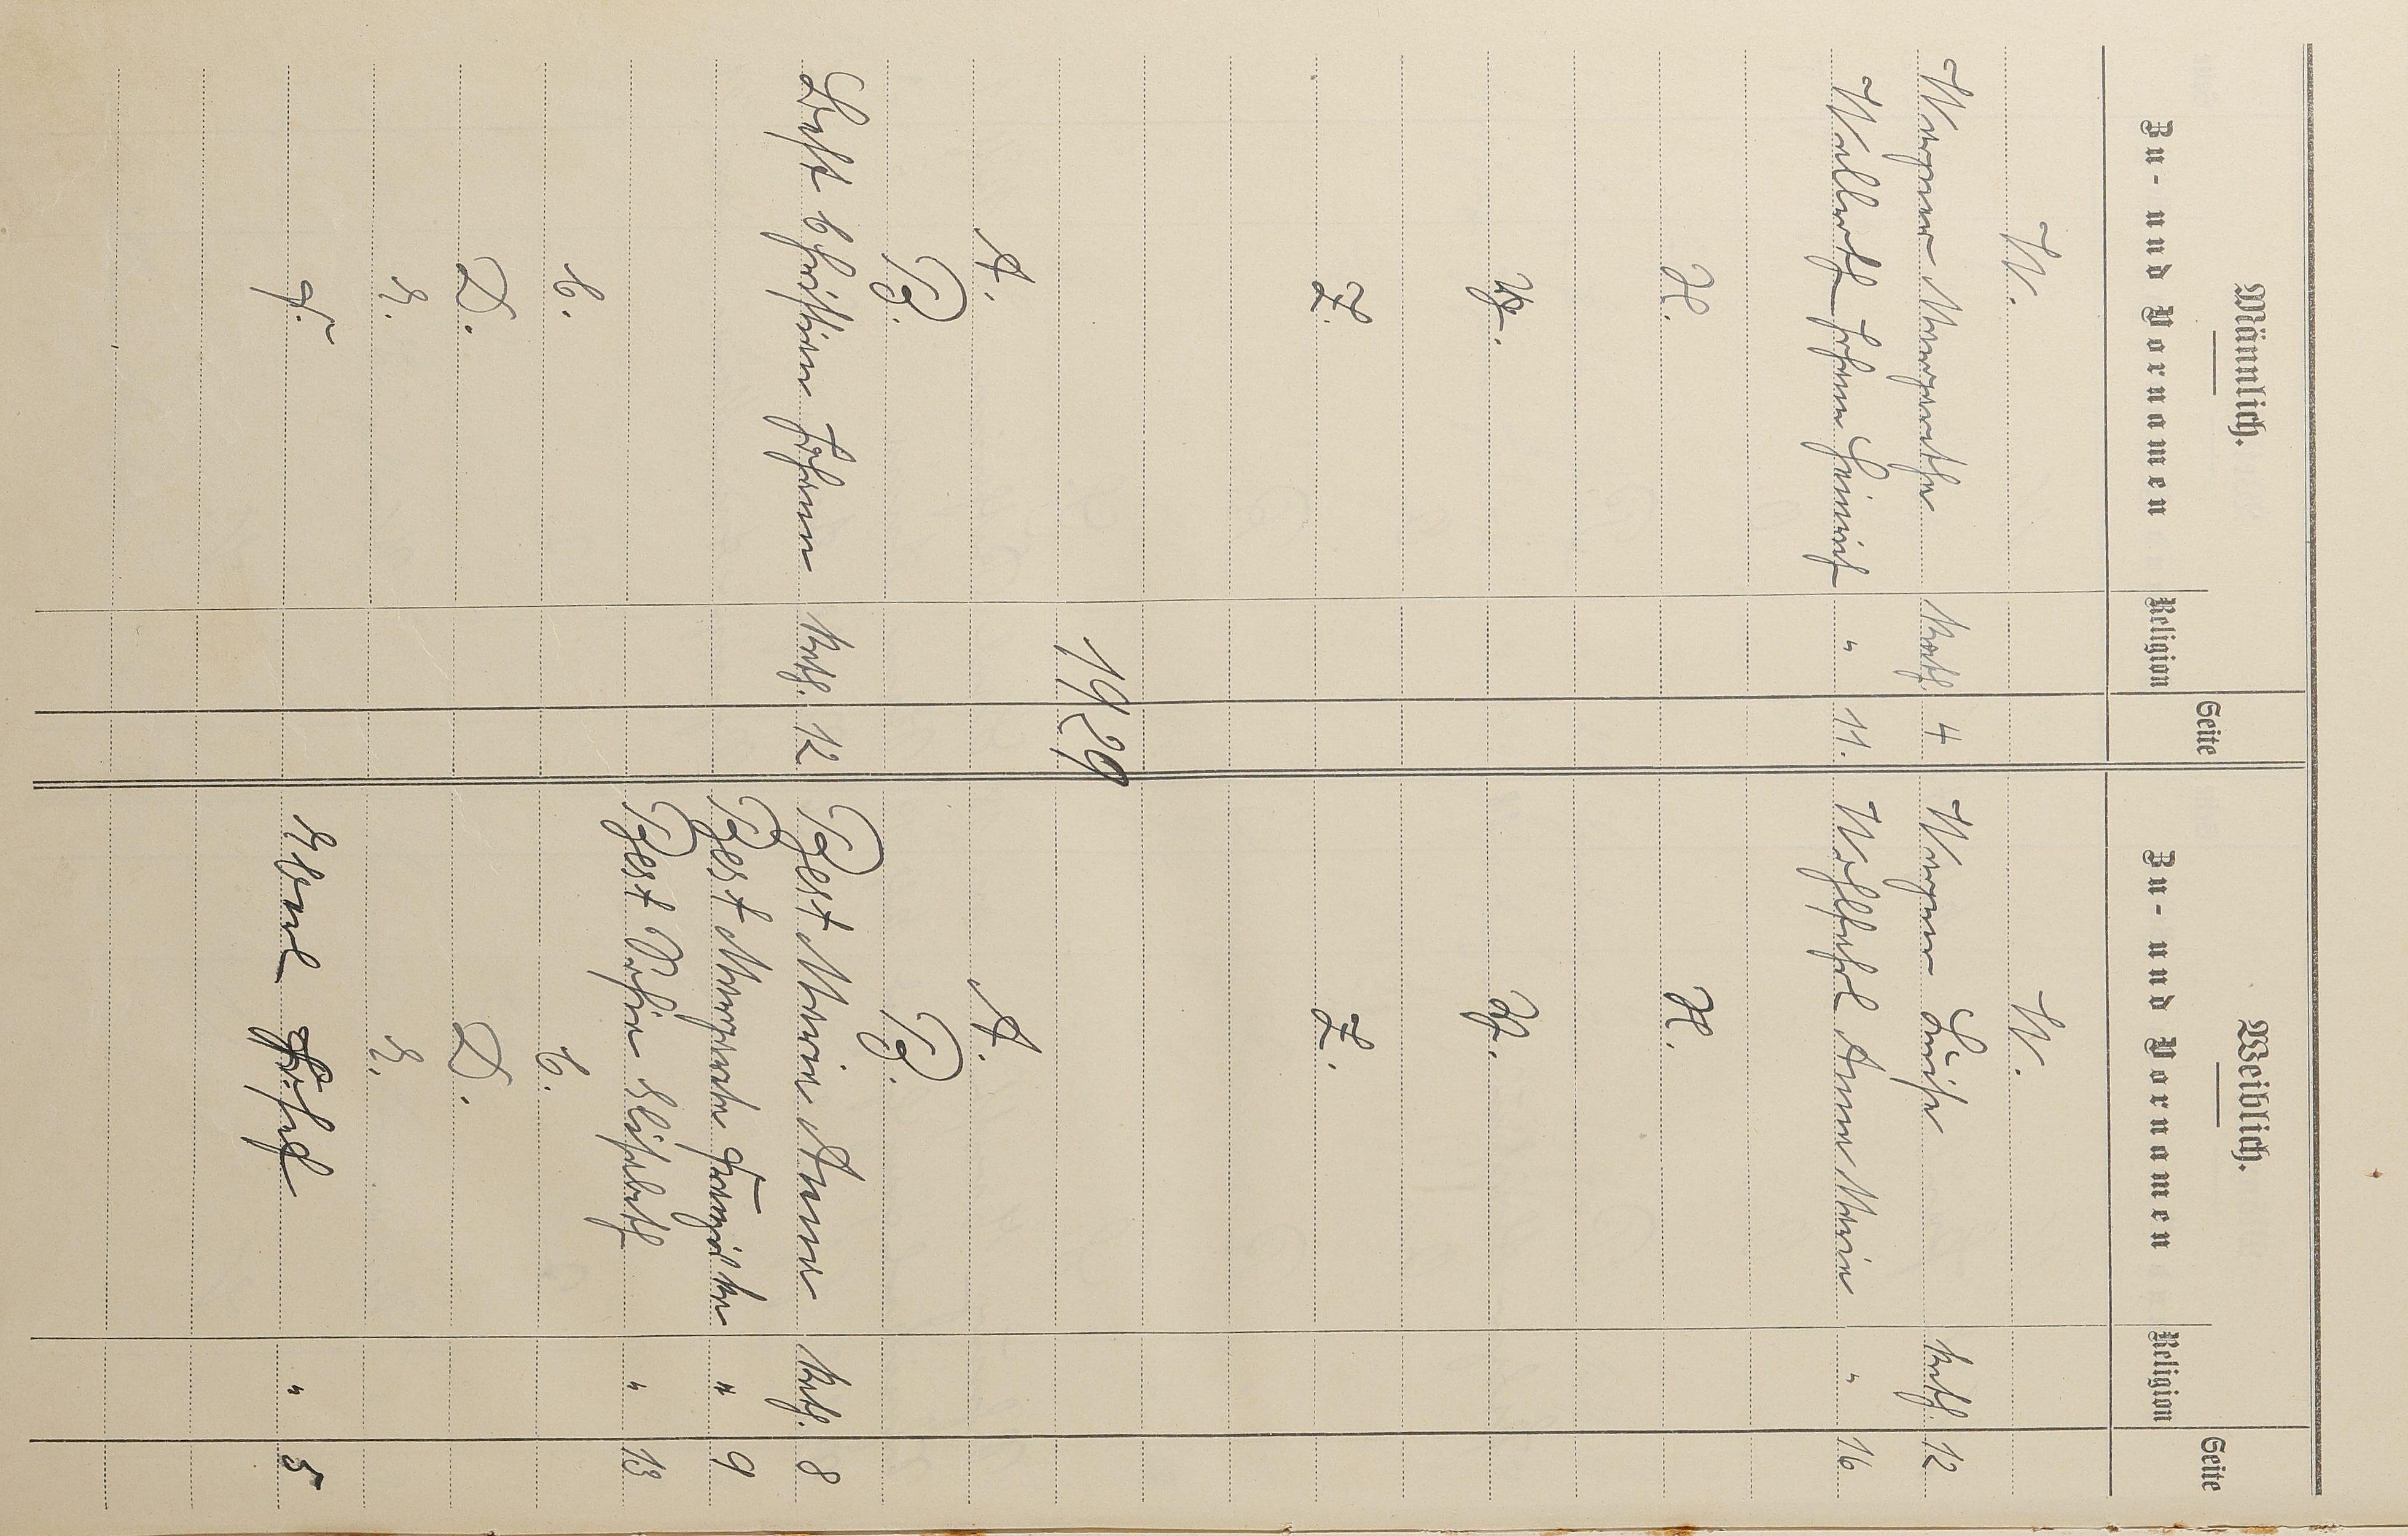 Männlich. Weiblich.
Zu- und Vornamen Religion Seite Zu- und Vornamen Religion Seite
W. W.
Wagner Margarethe Kath. 4 Wagner Luise Kath. 12
Wollerth Johann Heinrich " 11. Wohlfahrt Anna Maria " 16
X. X.
Y. Y.
Z. Z.
1929
A. A.
B. B.
Best Christian Johann Kath. 12 Best Maria Anna Kath. 8
Best Margareta Franziska " 9
Best Rosina Elisabeth " 13
C. C.
D. D.
E. E.
F. " 5